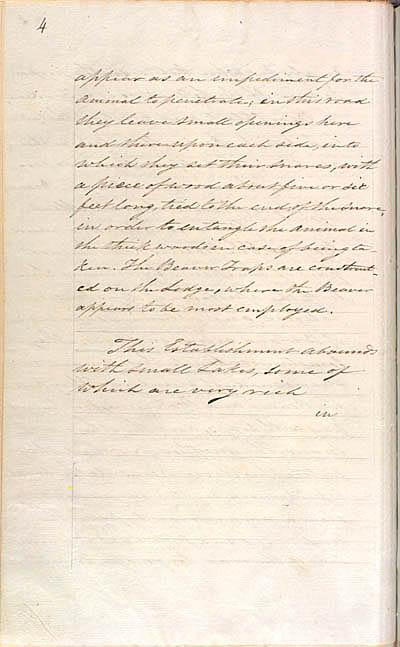 4
appear as an impediment for the
animal to penetrate; in this road
they leave small openings here
and there upon each side, into
which they set their snares, with
a piece of wood about five or six
feet long, tied to the end of the snare,
in order to entangle the animal in
the thick woods in case of being ta-
ken. The Beaver Traps are construct-
ed on the Lodge, where the Beaver
appears to be most employed.
This Establishment abounds
with small Lakes, some of
which are very rich
in